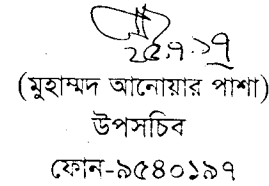 ২৫.৭.১৭
(মুহাম্মদ আনোয়ার পাশা)
উপসচিব
ফোন-৯৫৪০১৯৭